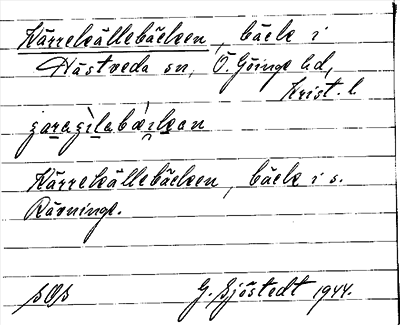 Kärrekällebäcken, bäck i
Hästveda sn, Ö. Göinge hd,
Krist. l
Kärrekällebäcken, bäck i s.
Rävninge.
SOS G. Sjöstedt 1944.